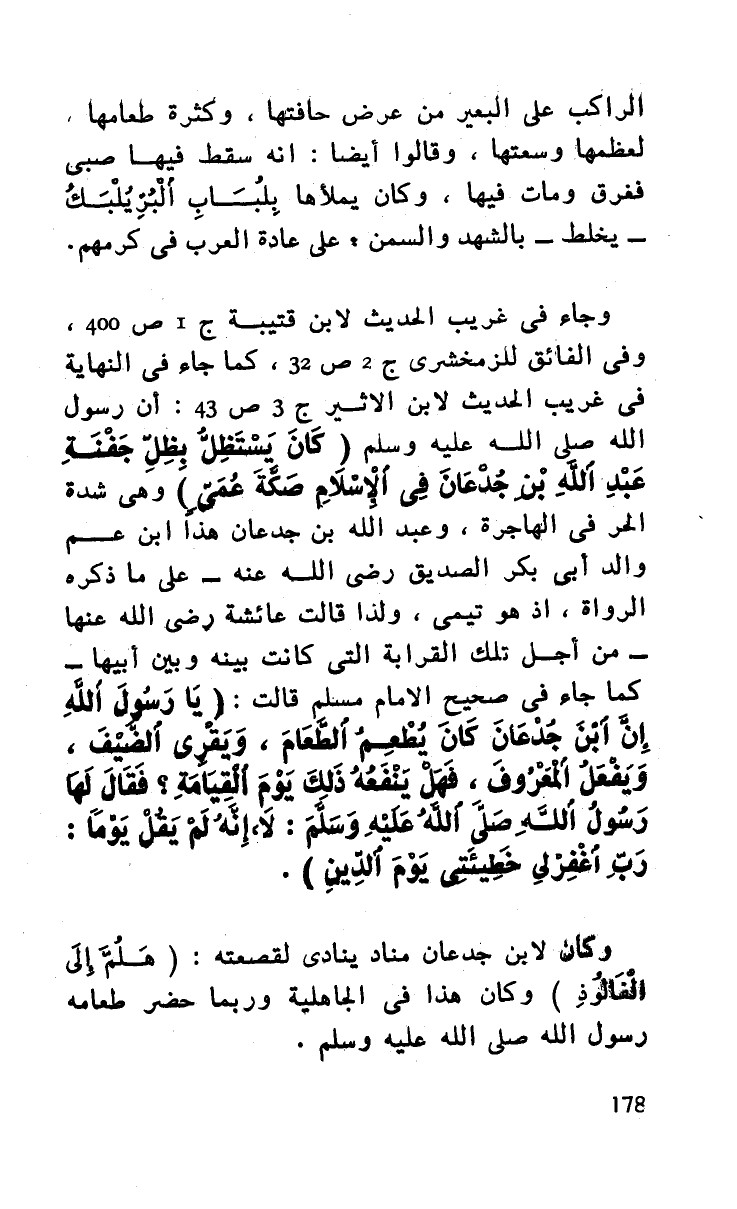 الراكب على البعير من عرض حافتها ، وكثرة طعامها ،
لعظمها وسعتها ، وقالوا أيضا : انه سقط فيها صبى
فغرق ومات فيها ، وكان يملأها بِلُبَابِ ٱلْبُرِّ يُلْبَكُ
ــ يخلط ــ بالشهد والسمن ، على عادة العرب فى كرمهم.
وجاء فى غريب الحديث لابن قتيبة ج 1 ص 400 ،
وفى الفائق للزمخشرى ج 2 ص 32 ، كما جاء فى النهاية
فى غريب الحديث لابن الاثير ج 3 ص 43 : أن رسول
الله صلى الله عليه وسلم ( كَانَ يَسْتَظِلُّ بِظِلِّ جَفْنَةِ
عَبْدِ ٱللَّهِ بْنِ جُدْعَانَ فِي ٱلْإِسْلَامِ صَكَّةَ عُمَيٍّ ) وهى شدة
الحر فى الهاجرة ، وعبد الله بن جدعان هذا ابن عم
والد أبى بكر الصديق رضى الله عنه ــ على ما ذكره
الرواة ، اذ هو تيمى ، ولذا قالت عائشة رضى الله عنها
ــ من أجل تلك القرابة التى كانت بينه وبين أبيها ــ
كما جاء فى صحيح الامام مسلم قالت : ( يَا رَسُولَ ٱللَّهِ
إِنَّ ٱبْنَ جُدْعَانَ كَانَ يُطْعِمُ ٱلطَّعَامَ ، وَيَقْرِى ٱلضَّيْفَ ،
وَيَفْعَلُ ٱلْمَعْرُوفَ ، فَهَلْ يَنْفَعُهُ ذَلِكَ يَوْمَ ٱلْقِيَامَةِ ؟ فَقَالَ لَهَا
رَسُولُ ٱللَّهِ صَلَّى ٱللَّهُ عَلَيْهِ وَسَلَّمَ : لَا، إِنَّهُ لَمْ يَقُلْ يَوْمًا :
رَبِّ ٱغْفِرْ لِي خَطِيئَتِى يَوْمَ ٱلدِّينِ ) .
وكان لابن جدعان مناد ينادى لقصعته : ( هَلُمَّ إِلَى
الْفَالُوذِ ) وكان هذا فى الجاهلية وربما حضر طعامه
رسول الله صلى الله عليه وسلم .
178